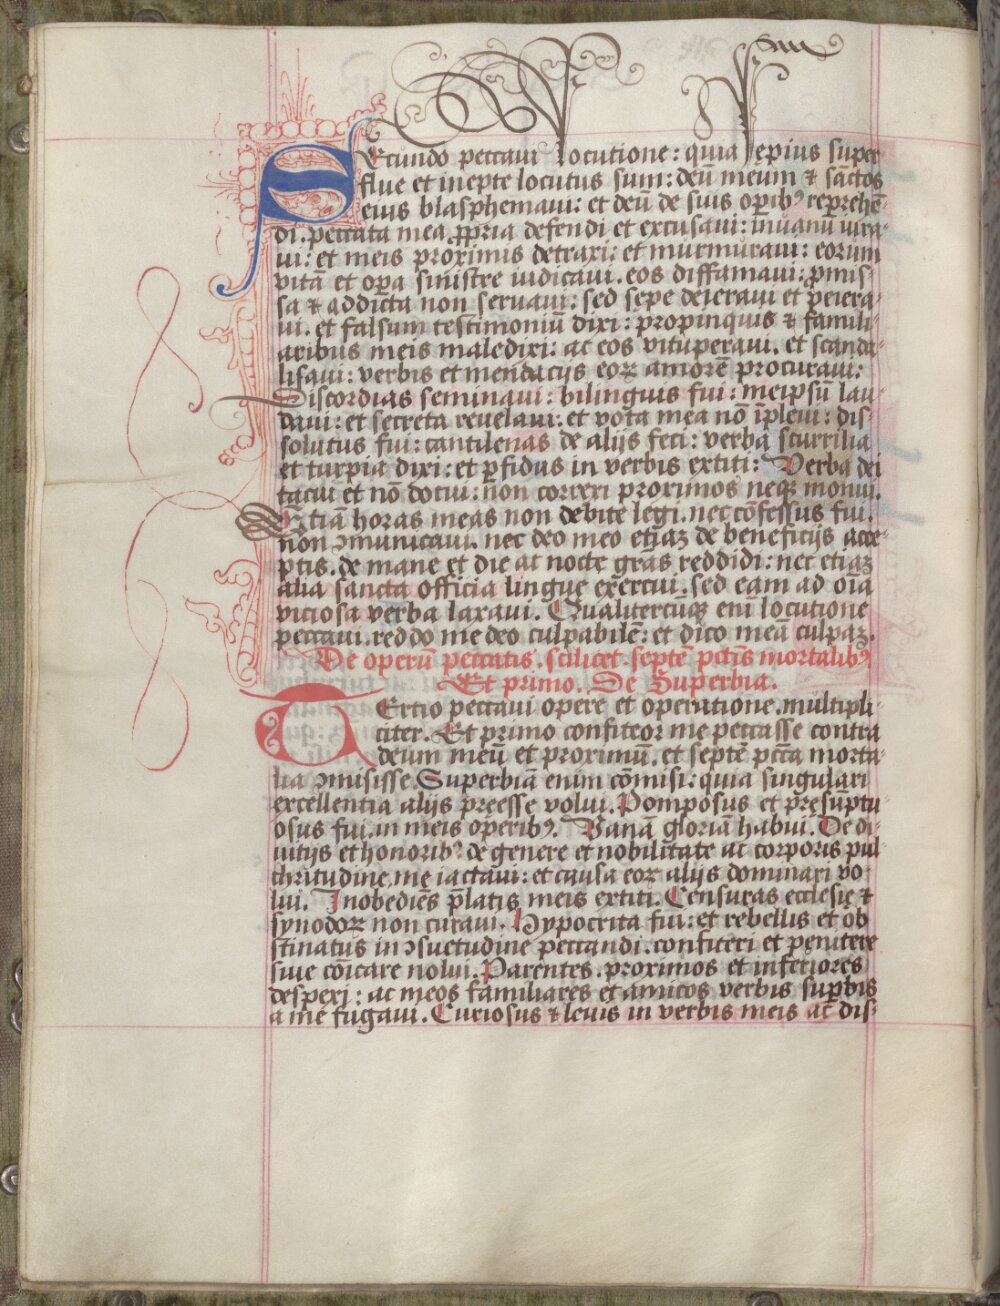 SEcundo peccaui locutione: quia sepius super
flue et inepte locutus sum: deū meum ⁊ sāctos
eius blasphemaui: et deū de suis oꝑib⁹ reprehē
di. peccata mea ꝓpria defendi et excusaui: inuanū iura
ui: et meis proximis detraxi: et murmuraui: eorum
vitā et oꝑa sinistre iudicaui. eos diffamaui: ꝓmis
sa ⁊ addicta non seruaui: sed sepe deieraui et peiera
ui. et falsum testimoniū dixi: propinquis ⁊ famili
aribus meis maledixi: ac eos vituperaui. et scanda
lisaui: verbis et mendacijs eoꝝ amorē procuraui:
Discordias seminaui: bilinguis fui: meipsū lau
daui: et secreta reuelaui: et vota mea nō īpleui: dis
solutus fui: cantilenas de alijs feci: verba scurrilia
et turpia dixi: et ꝑfidus in verbis extiti: Verba dei
tacui et nō docui: non correxi proximos neqꝫ monui.
Etiā horas meas non debite legi. nec cōfessus fui.
non ꝯmunicaui. nec deo meo etiaꝫ de beneficijs acce
ptis. de mane et die ac nocte grās reddidi: nec etiaꝫ
alia sancta officia lingue exercui. sed eam ad oīa
viciosa verba laxaui. Qualitercūqꝫ eni locutione
peccaui. reddo me deo culpabilē: et dico meā culpaꝫ.
De operū peccatis. scilicet. septē pctīs mortalib⁹
Et primo. De Superbia.
TErtio peccaui opere et operatione. multipli
citer. Et primo confiteor me peccasse contra
deum meū et proximū. et septē pctā morta
lia ꝯmisisse. Superbiā enim cōmisi: quia singulari
excellentia alijs preesse volui. Pomposus et presūptu
osus fui. in meis operib⁹. Vanā gloriā habui. De di
uitijs et honorib⁹ de genere et nobilitate ac corporis pul
chritudine me iactaui: et causa eoꝝ alijs dominari vo
lui. Inobediēs p̄latis meis extiti. Censuras ecclesię ⁊
synodoꝝ non curaui. Hypocrita fui: et rebellis et ob
stinatus in ꝯsuetudine peccandi. confiteri et penitere
siue cōicare nolui. Parentes. proximos et inferiores
despexi: ac meos familiares et amicos verbis suꝑbis
a me fugaui. Curiosus ⁊ leuis in verbis meis ac dis